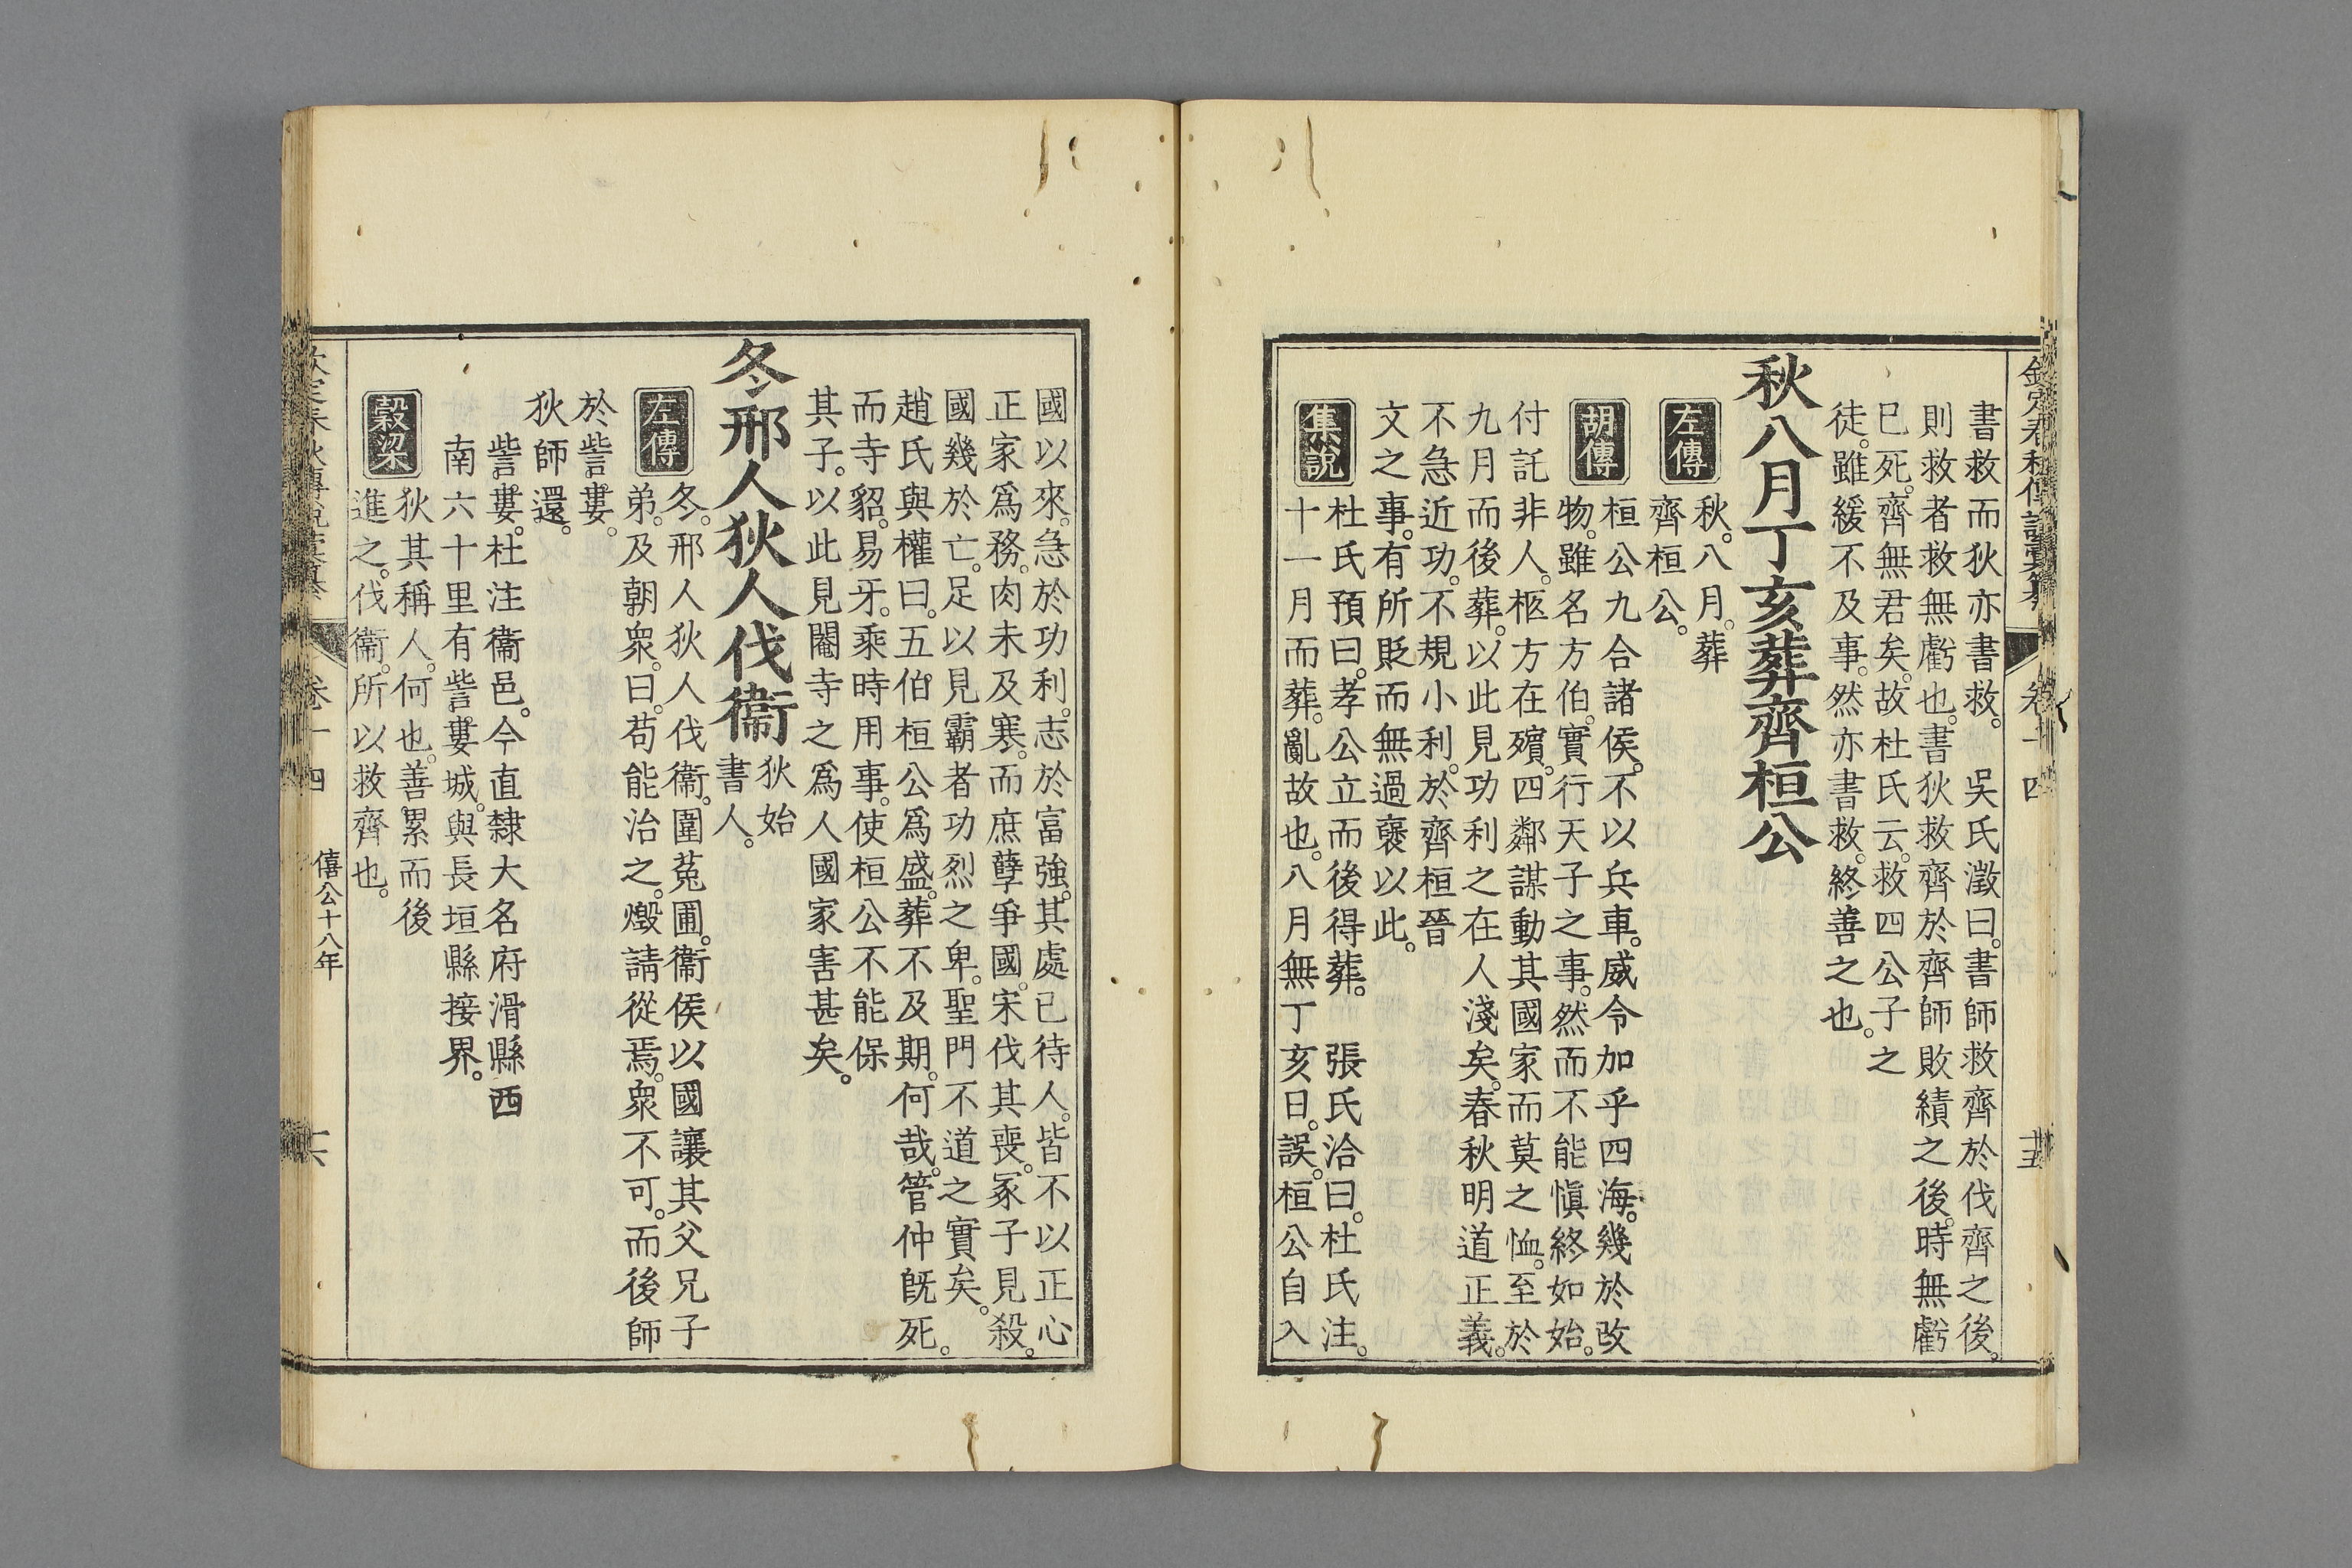 欽定春秋傳說彙纂 卷十四
書救而狄亦書救。 吳氏澂曰。書師救齊於伐齊之後。
則救者救無虧也。書狄救齊於齊師敗績之後。時無虧
已死。齊無君矣。故杜氏云。救四公子之
徒。雖緩不及事。然亦書救。終善之也。
秋八月丁亥葬齊桓公
左傳
秋。八月。葬
齊桓公。
胡傳
桓公九合諸侯。不以兵車。威令加乎四海。幾於改
物。雖名方伯。實行天子之事。然而不能愼終如始。
付託非人。柩方在殯。四鄰謀動其國家而莫之恤。至於
九月而後葬。以此見功利之在人淺矣。春秋明道正義。
不急近功。不規小利。於齊桓晉
文之事。有所貶而無過襃以此。
集說
杜氏預曰。孝公立而後得葬。 張氏洽曰。杜氏注。
十一月而葬。亂故也。八月無丁亥日。誤。桓公自入
國以來。急於功利。志於富強。其處已待人。皆不以正心
正家爲務。肉未及寒。而庶孽爭國。宋伐其喪。冢子見殺。
國幾於亡。足以見霸者功烈之卑。聖門不道之實矣。
趙氏與權曰。五伯桓公爲盛。葬不及期。何哉。管仲旣死。
而寺貂。易牙。乘時用事。使桓公不能保
其子。以此見閹寺之爲人國家害甚矣。
冬邢人狄人伐衞
狄始
書人。
左傳
冬。邢人狄人伐衞。圍菟圃。衞侯以國讓其父兄子
弟。及朝衆。曰。苟能治之。燬請從焉。衆不可。而後師
於訾婁。
狄師還。
訾婁。杜注衞邑。今直隸大名府滑縣西
南六十里有訾婁城。與長垣縣接界。
穀梁
狄其稱人。何也。善累而後
進之。伐衞。所以救齊也。
欽定春秋傳說彙纂 卷十四 僖公十八年